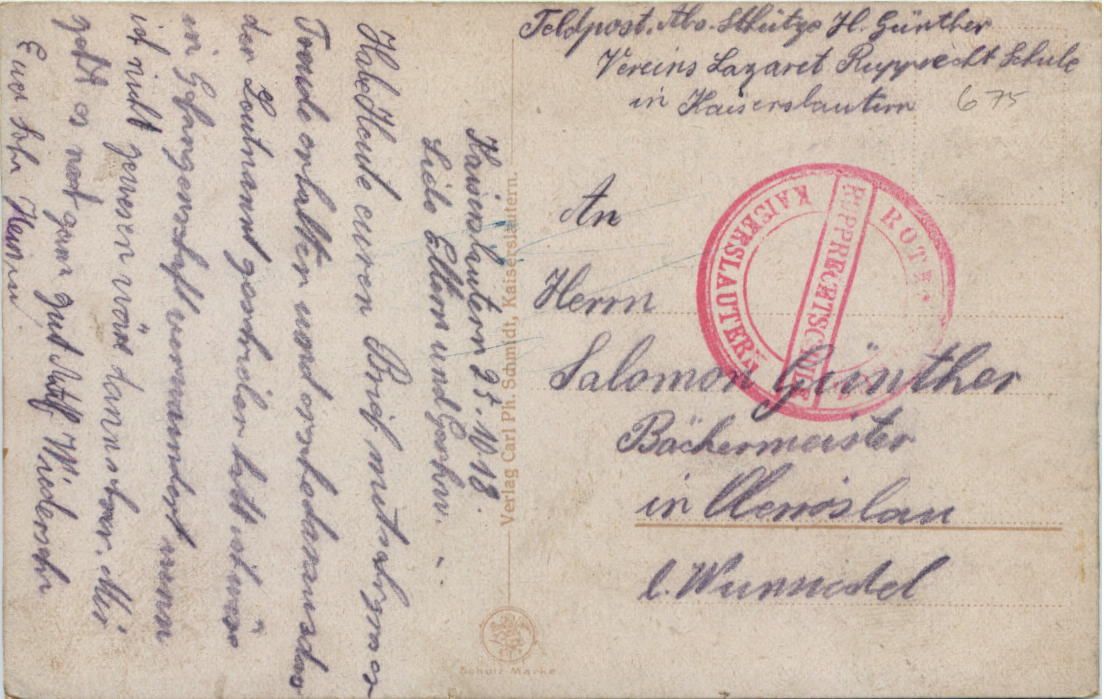 Feldpost. Abs. Schütze H. Günther
Vereins Lazaret Rupprecht Schule
in Kaiserslautern 675
ROTE
RUPPRECHTSCHULE
KAISERSLAUTERN
An
Herrn
Salomon Günther
Bäckermeister
in
b. Wunsiedel
Verlag Carl Ph. Schmidt, Kaiserslautern.
Schutz Marke
Kaiserslautern 25. 18.
Liebe Eltern und Geschw.
Habe Heute euren Brief mit
erhalten und daraus das
der Leutnant geschrieben hatt ich wäre
in Gefangenschaft verwundert wenn
ich nicht gewesen wäre kann Mir
geht es noch ganz gut Auf Wiedersehn
Euer Sohn Heinrich